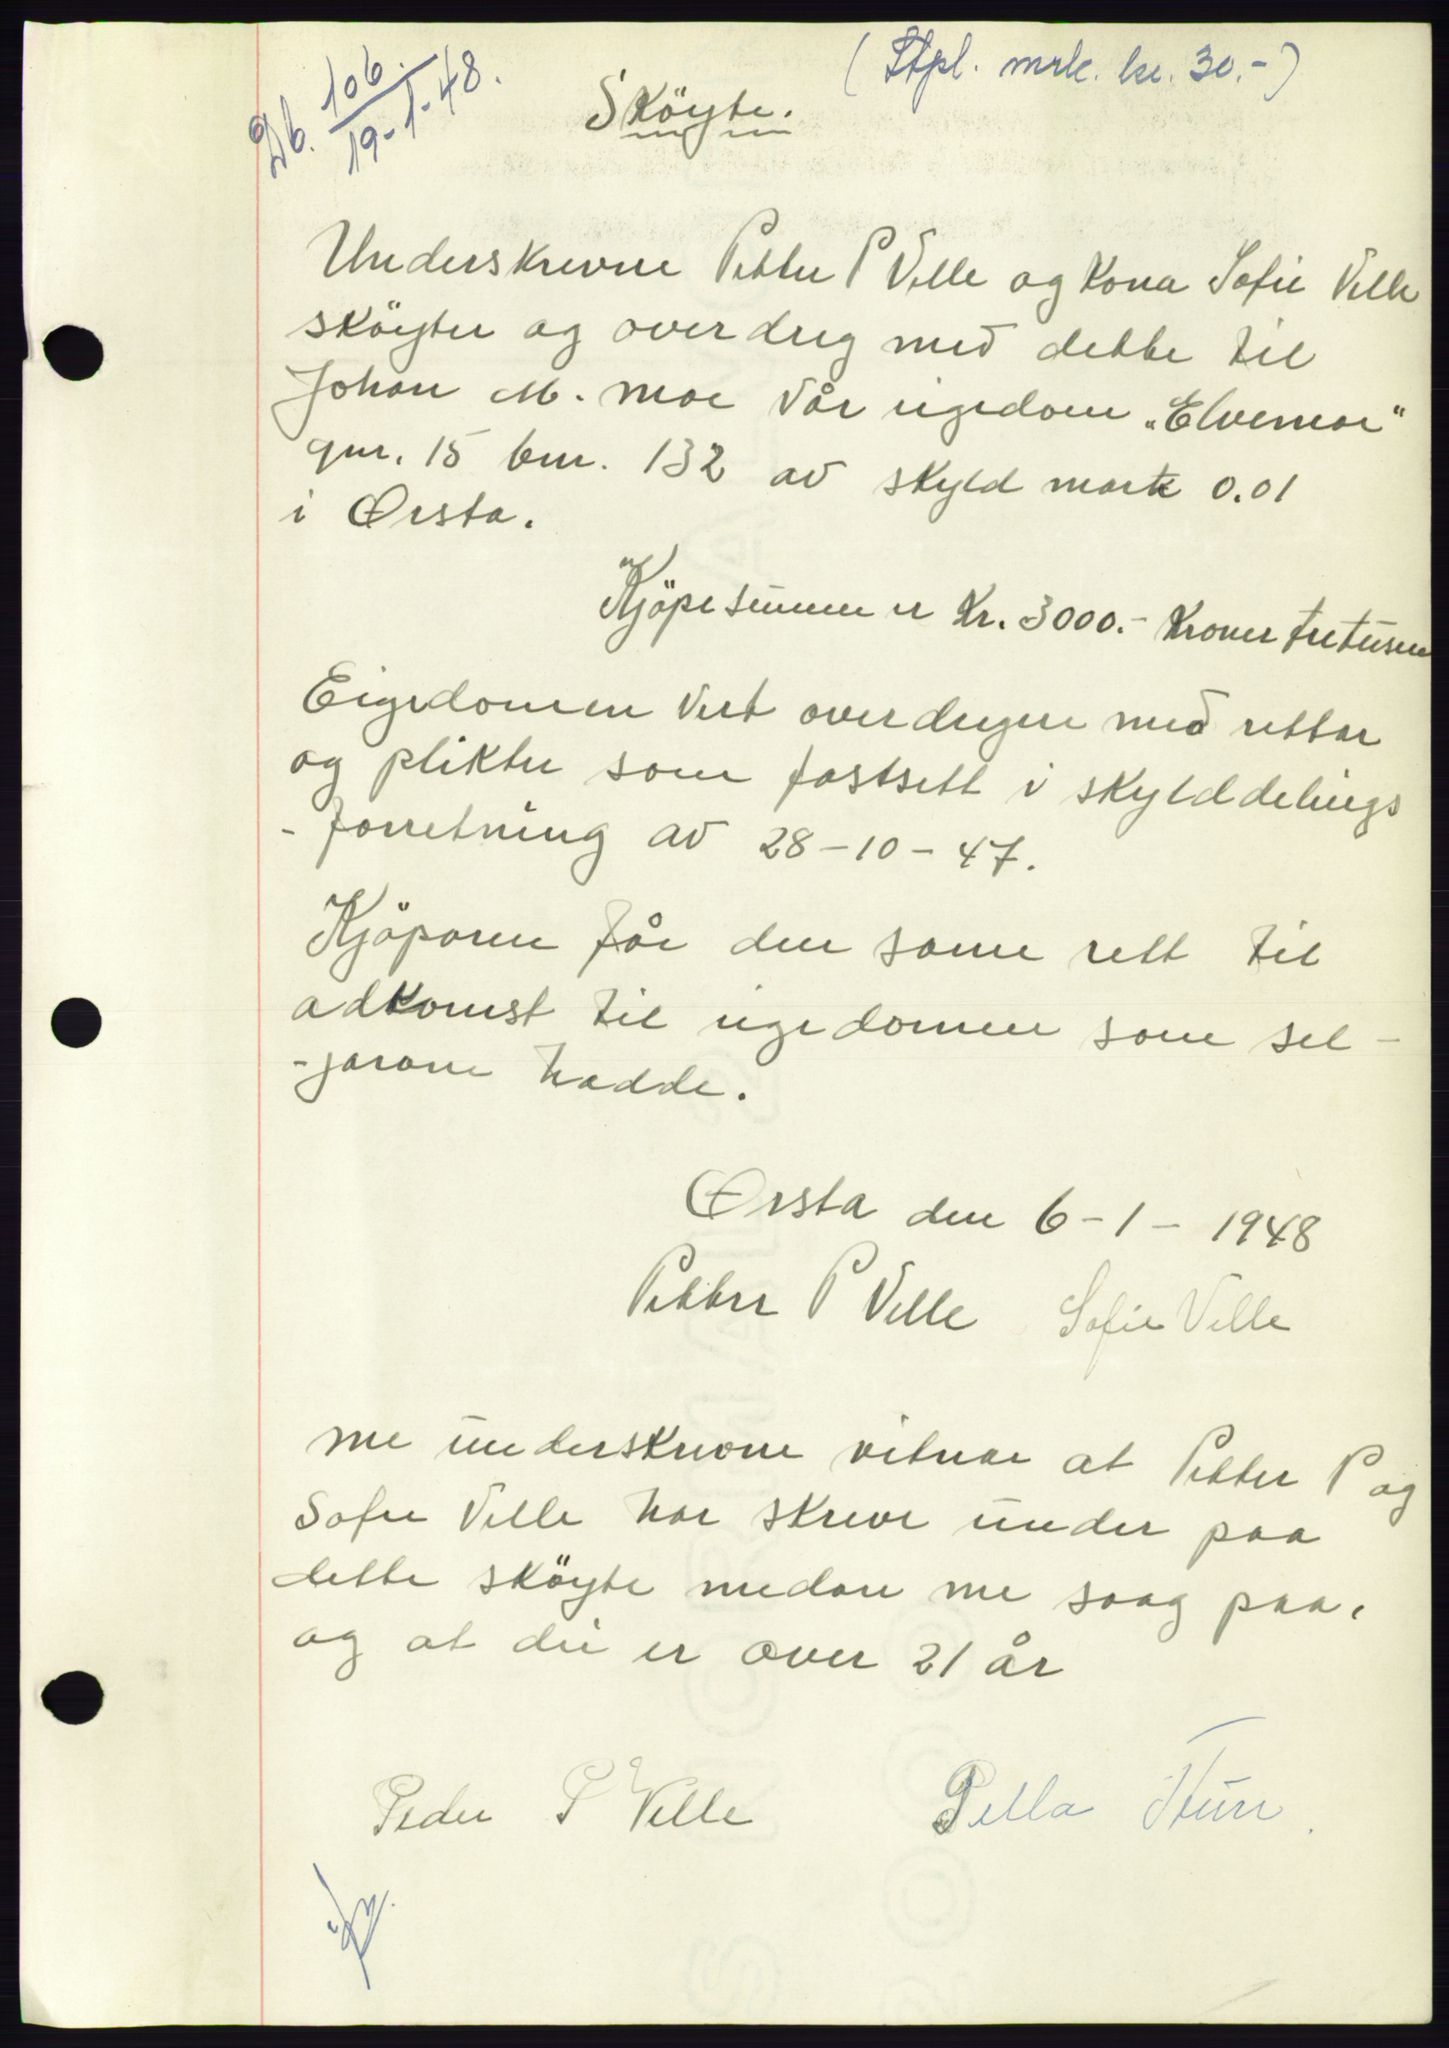 (Stpl. mrk. kr. 30.-)
Db. 106. / 19-1-48.
Sköyte.
Underskrevne Petter P Velle og Kona Sofie Velle
sköyter og overdreg med dette til
Johan M. Moe vår eigedom „Elvemoe"
gnr. 15 bnr. 132 av skyld mark 0.01
i Ørsta.
Kjöpesummen er Kr. 3000.- Kroner tretusen
Eigedomen vert overdregen med rettar
og plikter som fastsett i skylddelings
- forretning av 28-10-47.
Kjöparen får den same rett til
adkomst til eigedomen som sel-
-jarane hadde.
Ørsta den 6-1-1948
Petter P Velle Sofie Velle
me underskrivne vitnar at Petter P og
Sofie Velle har skreve under paa
dette sköyte medan me saag paa,
og at dei er over 21 år
Peder P Velle Pella